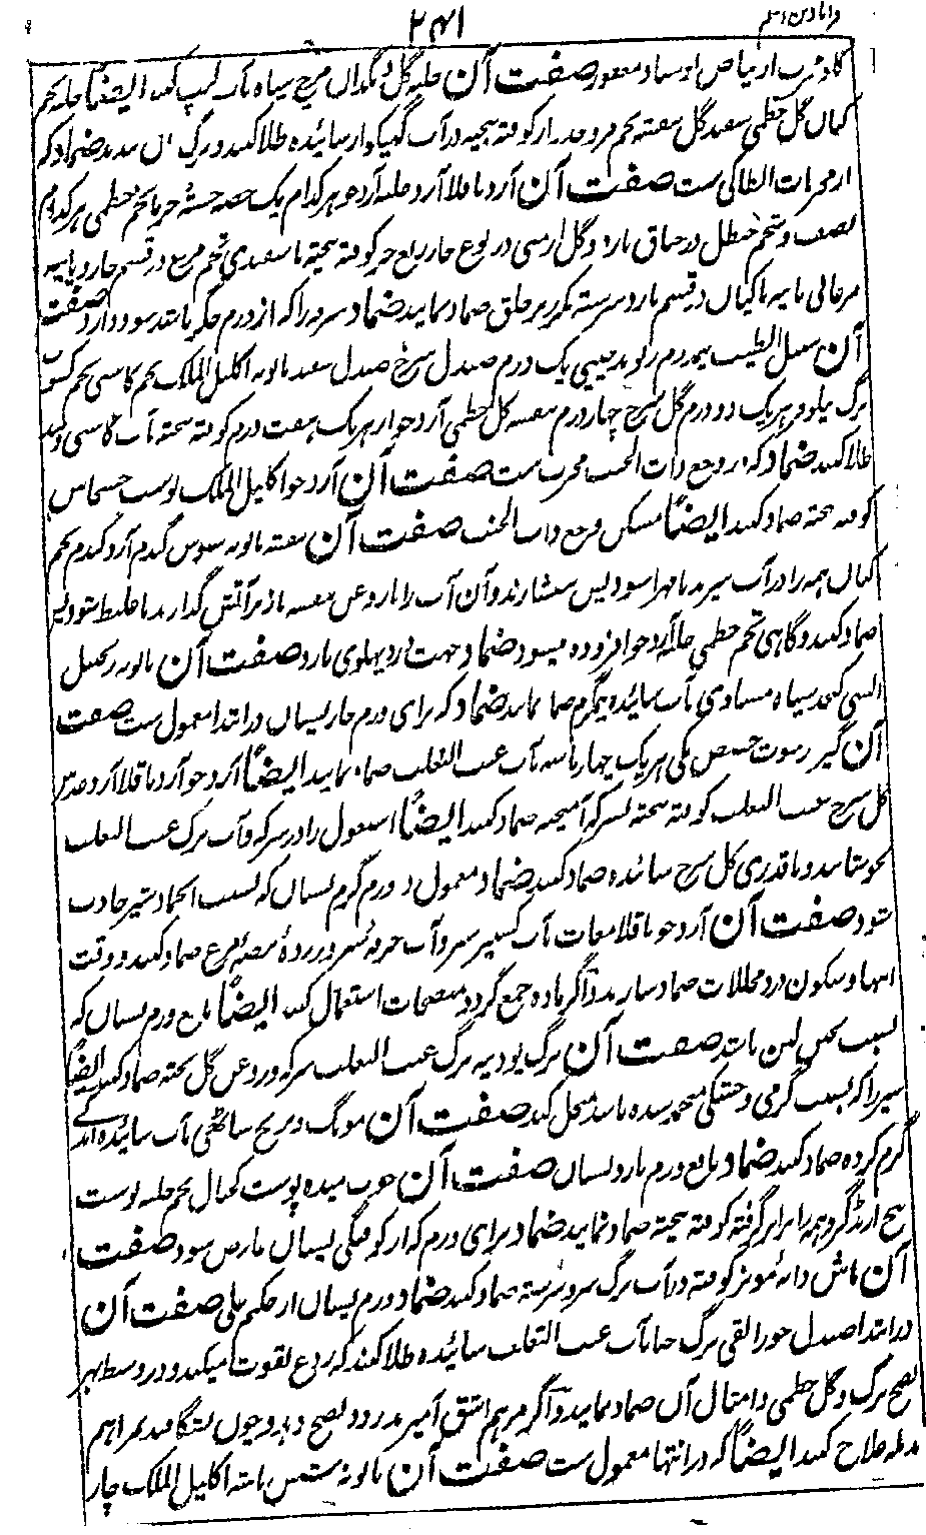 ۲۴۱
صفت آن حلبه گل مرچ سیاه بآب لیپ کنند ایضاً حلبه تخم
کتان گل خطمی سفید گل بنفشه تخم مرو کوفته بیخته در آب گهیکوار سائیده طلا کنند و برگ آن بندند ضماد که
از مجربات انطاکی ست صفت آن آرد باقلا آرد حلبه آرد جو هر کدام یک حصه تخم خطمی هر کدام
نصف و تخم حنظل در خناق بارد و گل ارمنی در نوع حار ربع جزو کوفته بیخته با سفیدی تخم مرغ در قسم حار و با پیه
مرغابی یا پیه ماکیان در قسم بارد سرشته مکرر بر حلق ضماد نمایند ضماد سرفه را که از ورم جگر باشد سود دارد صفت
آن سنبل الطیب نیم درم ریوند چینی یک درم صندل سرخ صندل سفید بابونه اکلیل الملک تخم کاسنی تخم کشوث
برگ نیلوفر هر یک دو درم گل سرخ چهار درم بنفشه گل خطمی آرد جو از هر یک هفت درم کوفته بیخته بآب کاسنی
طلا کنند ضماد که در وجع ذات الجنب مجرب ست صفت آن آرد جو اکلیل الملک پوست خشخاش
کوفته بیخته ضماد کنند ایضاً مسکن وجع ذات الجنب صفت آن بنفشه بابونه سبوس گندم آرد گندم تخم
کتان همه را در آب بپزند تا مهرا شود پس بیفشارند و آن آب را با روغن بنفشه باز بر آتش گذارند تا غلیظ شود پس
ضماد کنند و گاهی تخم خطمی حلبه آرد جو افزوده میشود ضماد جهت درد پهلوی بارد صفت آن بابونه زنجبیل
السی کنجد سیاه مساوی بآب سائیده نیمگرم ضماد نمایند ضماد که برای ورم حار پستان در ابتدا معمول ست صفت
آن گیرو رسوت حضض مکی هر یک چهار ماشه بآب عنب الثعلب ضماد نمایند ایضاً آرد جو آرد باقلا آرد عدس
گل سرخ عنب الثعلب کوفته بیخته بسرکه آمیخته ضماد کنند ایضاً اسپغول را در سرکه و آب برگ عنب الثعلب
بجوشانند و با قدری گل سرخ سائیده ضماد کنند ضماد معمول در ورم گرم پستان که بسبب انجماد شیر حادث
شود صفت آن آرد جو باقلا آب کشنیز سبز و آب خرفه سبز و زرده بیضه مرغ ضماد کنند و وقت
انتها و سکون درد محللات ضماد سازند و اگر ماده جمع گردد منضجات استعمال کنند ایضاً نافع ورم پستان که
بسبب لبن باشد صفت آن برگ پودینه برگ عنب الثعلب سرکه و روغن گل پخته ضماد کنند ایضاً
شیر را که بسبب گرمی و خشکی منجمد شده باشد محلل کند صفت آن مونگ و برنج ساٹھی بآب سائیده اندکے
گرم کرده ضماد کنند ضماد نافع ورم بارد پستان صفت آن چوب میده پوست کچنال تخم حلبه پوست
بیخ ارنڈ گیرو همه را برابر گرفته کوفته بیخته ضماد نمایند ضماد برای ورم که از کوفتگی پستان عارض شود صفت
آن ماش دانه مویز کوفته در آب برگ سرو سرشته ضماد کنند ضماد ورم پستان از حکیم علی صفت آن
در ابتدا صندل برگ حنا بآب عنب الثعلب سائیده طلا کنند که ردع بقوت میکند و در وسط بهر
نضج برگ و گل خطمی و امثال آن ضماد نمایند و اگر مرهم آمیزند زود نضج دهد و چون بشگافد بمراهم
مدمله علاج کنند ایضاً که در انتها معمول ست صفت آن بابونه شش ماشه اکلیل الملک چار